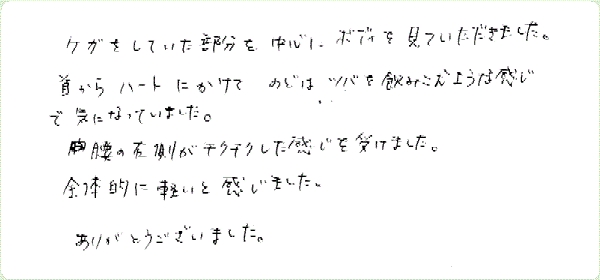 ケガをしていた部分を中心に ボディを見ていただきました。
首から ハートにかけて のどは ツバを飲みこむような感じ
で気になっていました。
胸腰の右側がチクチクした感じを受けました。
全体的に軽いと感じました。
ありがとうございました。